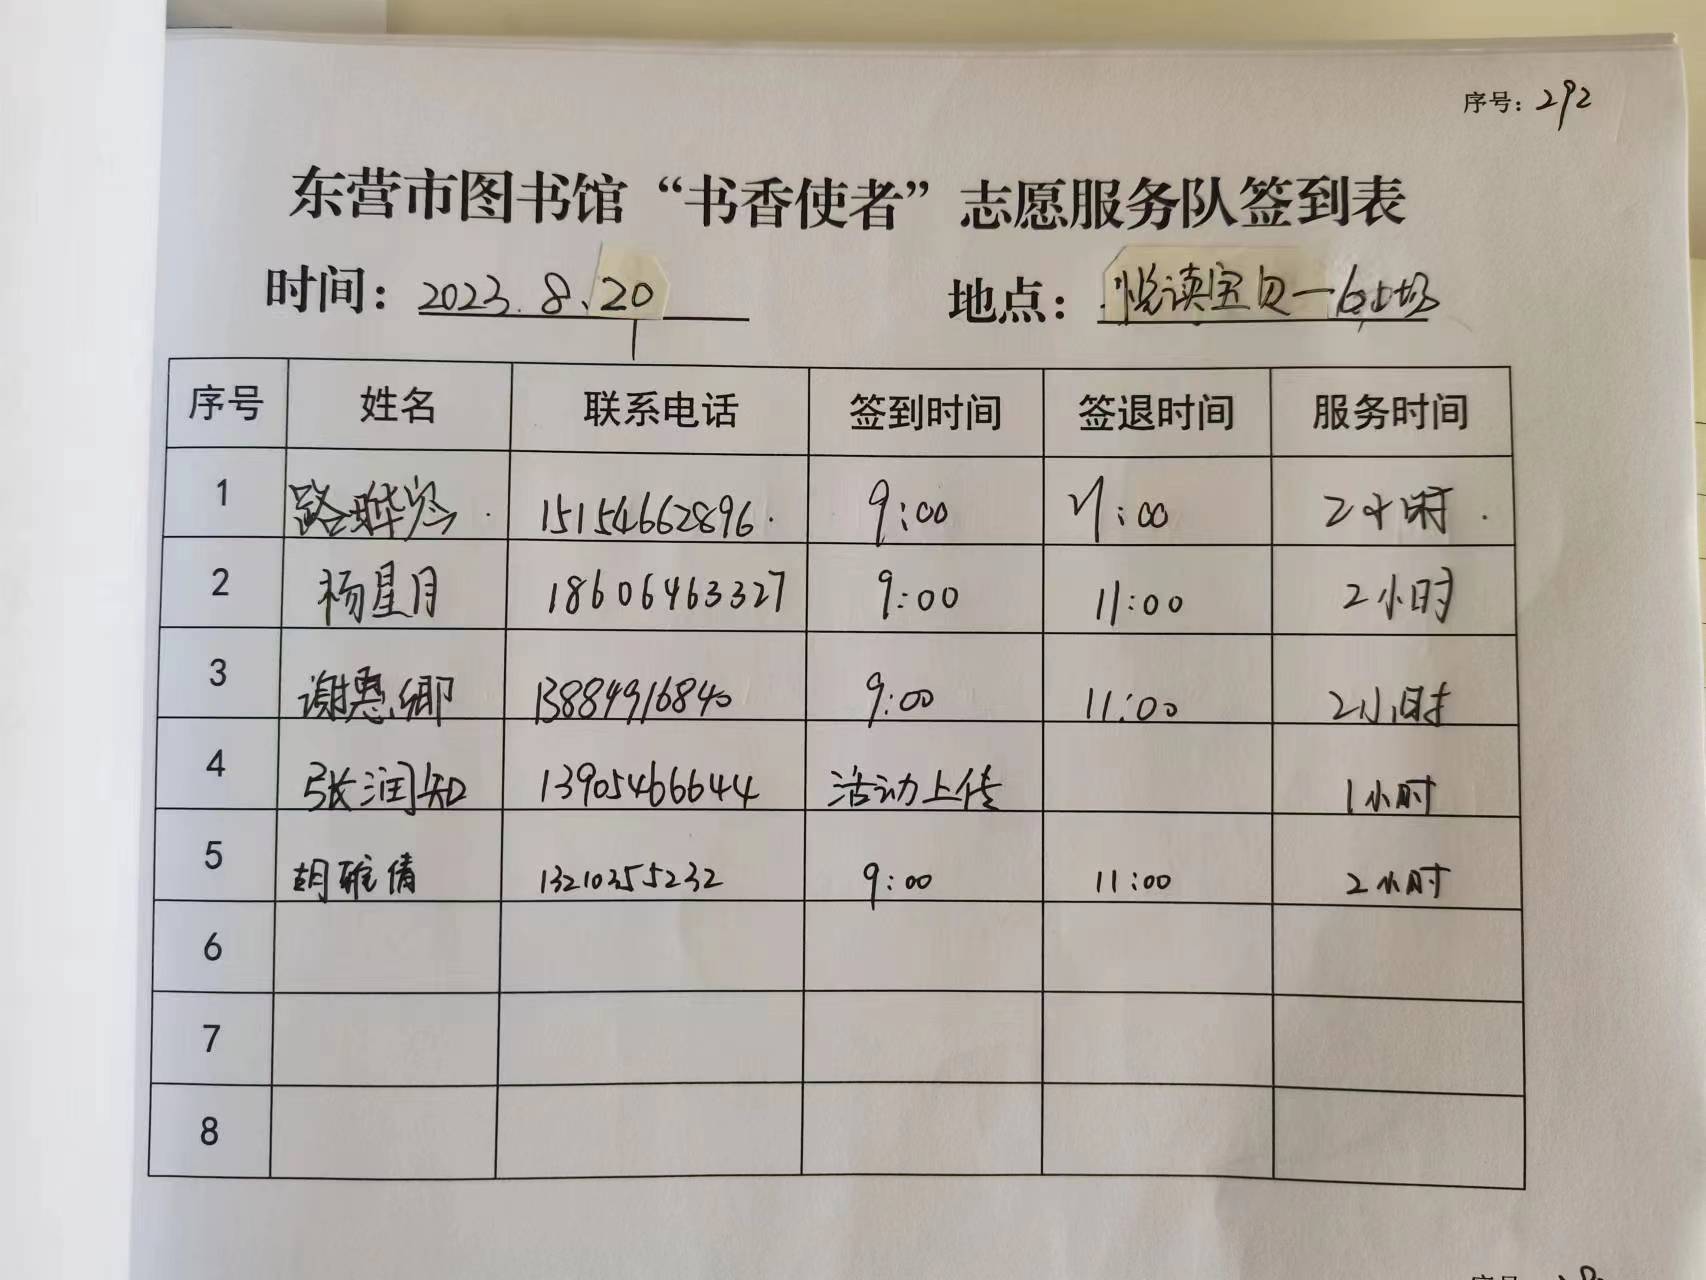 序号：292
东营市图书馆“书香使者”志愿服务队签到表
时间：2023.8.20 地点：悦读宝贝一
序号 姓名 联系电话 签到时间 签退时间 服务时间
1 路晔 15154662896. 9:00 11:00 2小时.
2 杨星月 18606463327 9:00 11:00 2小时
3 谢惠卿 13884916840 9:00 11:00 2小时
4 张润知 13905466644 活动上传 1小时
5 胡雅倩 13210355232 9:00 11:00 2小时
6
7
8